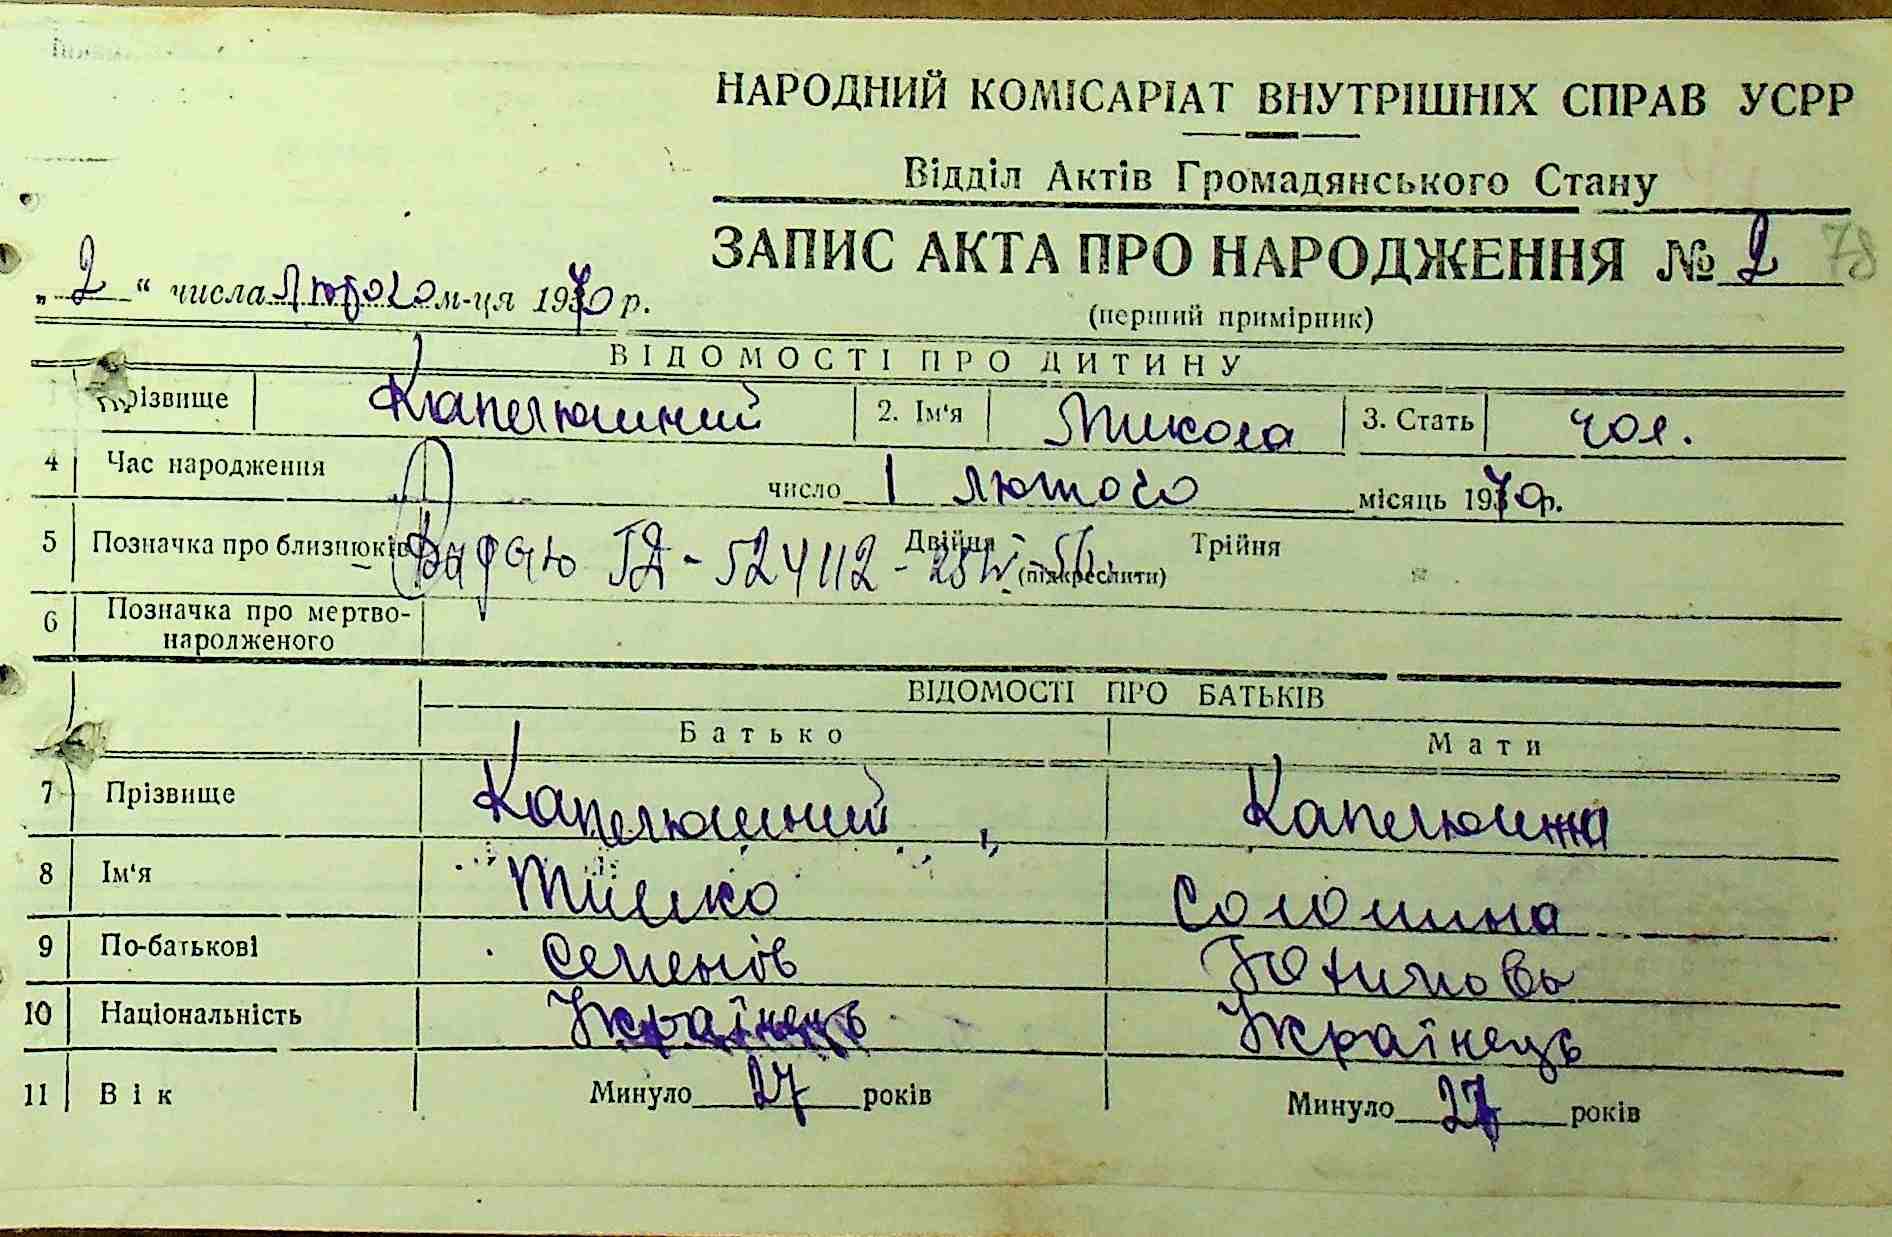 НАРОДНИЙ КОМІСАРІАТ ВНУТРІШНІХ СПРАВ УСРР
Відділ Актів Громадянського Стану
ЗАПИС АКТА ПРО НАРОДЖЕННЯ № 2 78
„ 2 “ числа Лютого м-ця 1940 р.
(перший примірник)
ВІДОМОСТІ ПРО ДИТИНУ
1 Прізвище Капелюшний 2. Ім‘я Микола 3. Стать чол.
4 Час народження число 1 лютого місяць 1940р.
5 Позначка про близнюків Двійня Трійня
(підкреслити)
6 Позначка про мертво-
народженого
ВІДОМОСТІ ПРО БАТЬКІВ
Батько Мати
7 Прізвище Капелюшний Капелюшна
8 Ім‘я Тимко Соломина
9 По-батькові Семенов Юхимовь
10 Національність Українець Українець
11 Вік Минуло 27 років Минуло 27 років